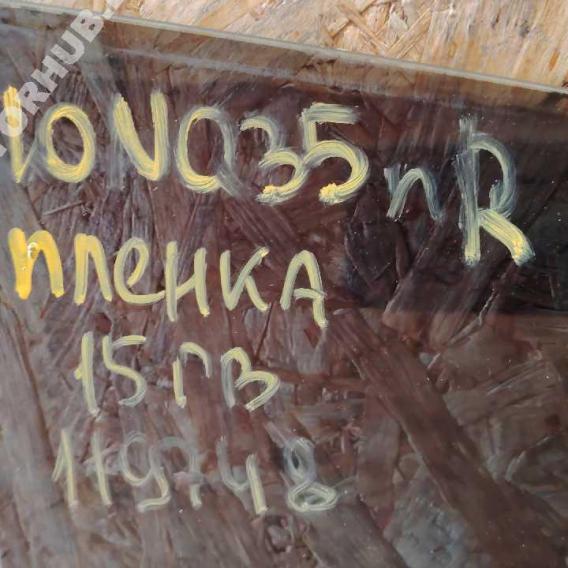 TORHUB.
10VQ35 п R
пленка
15 гв
179748